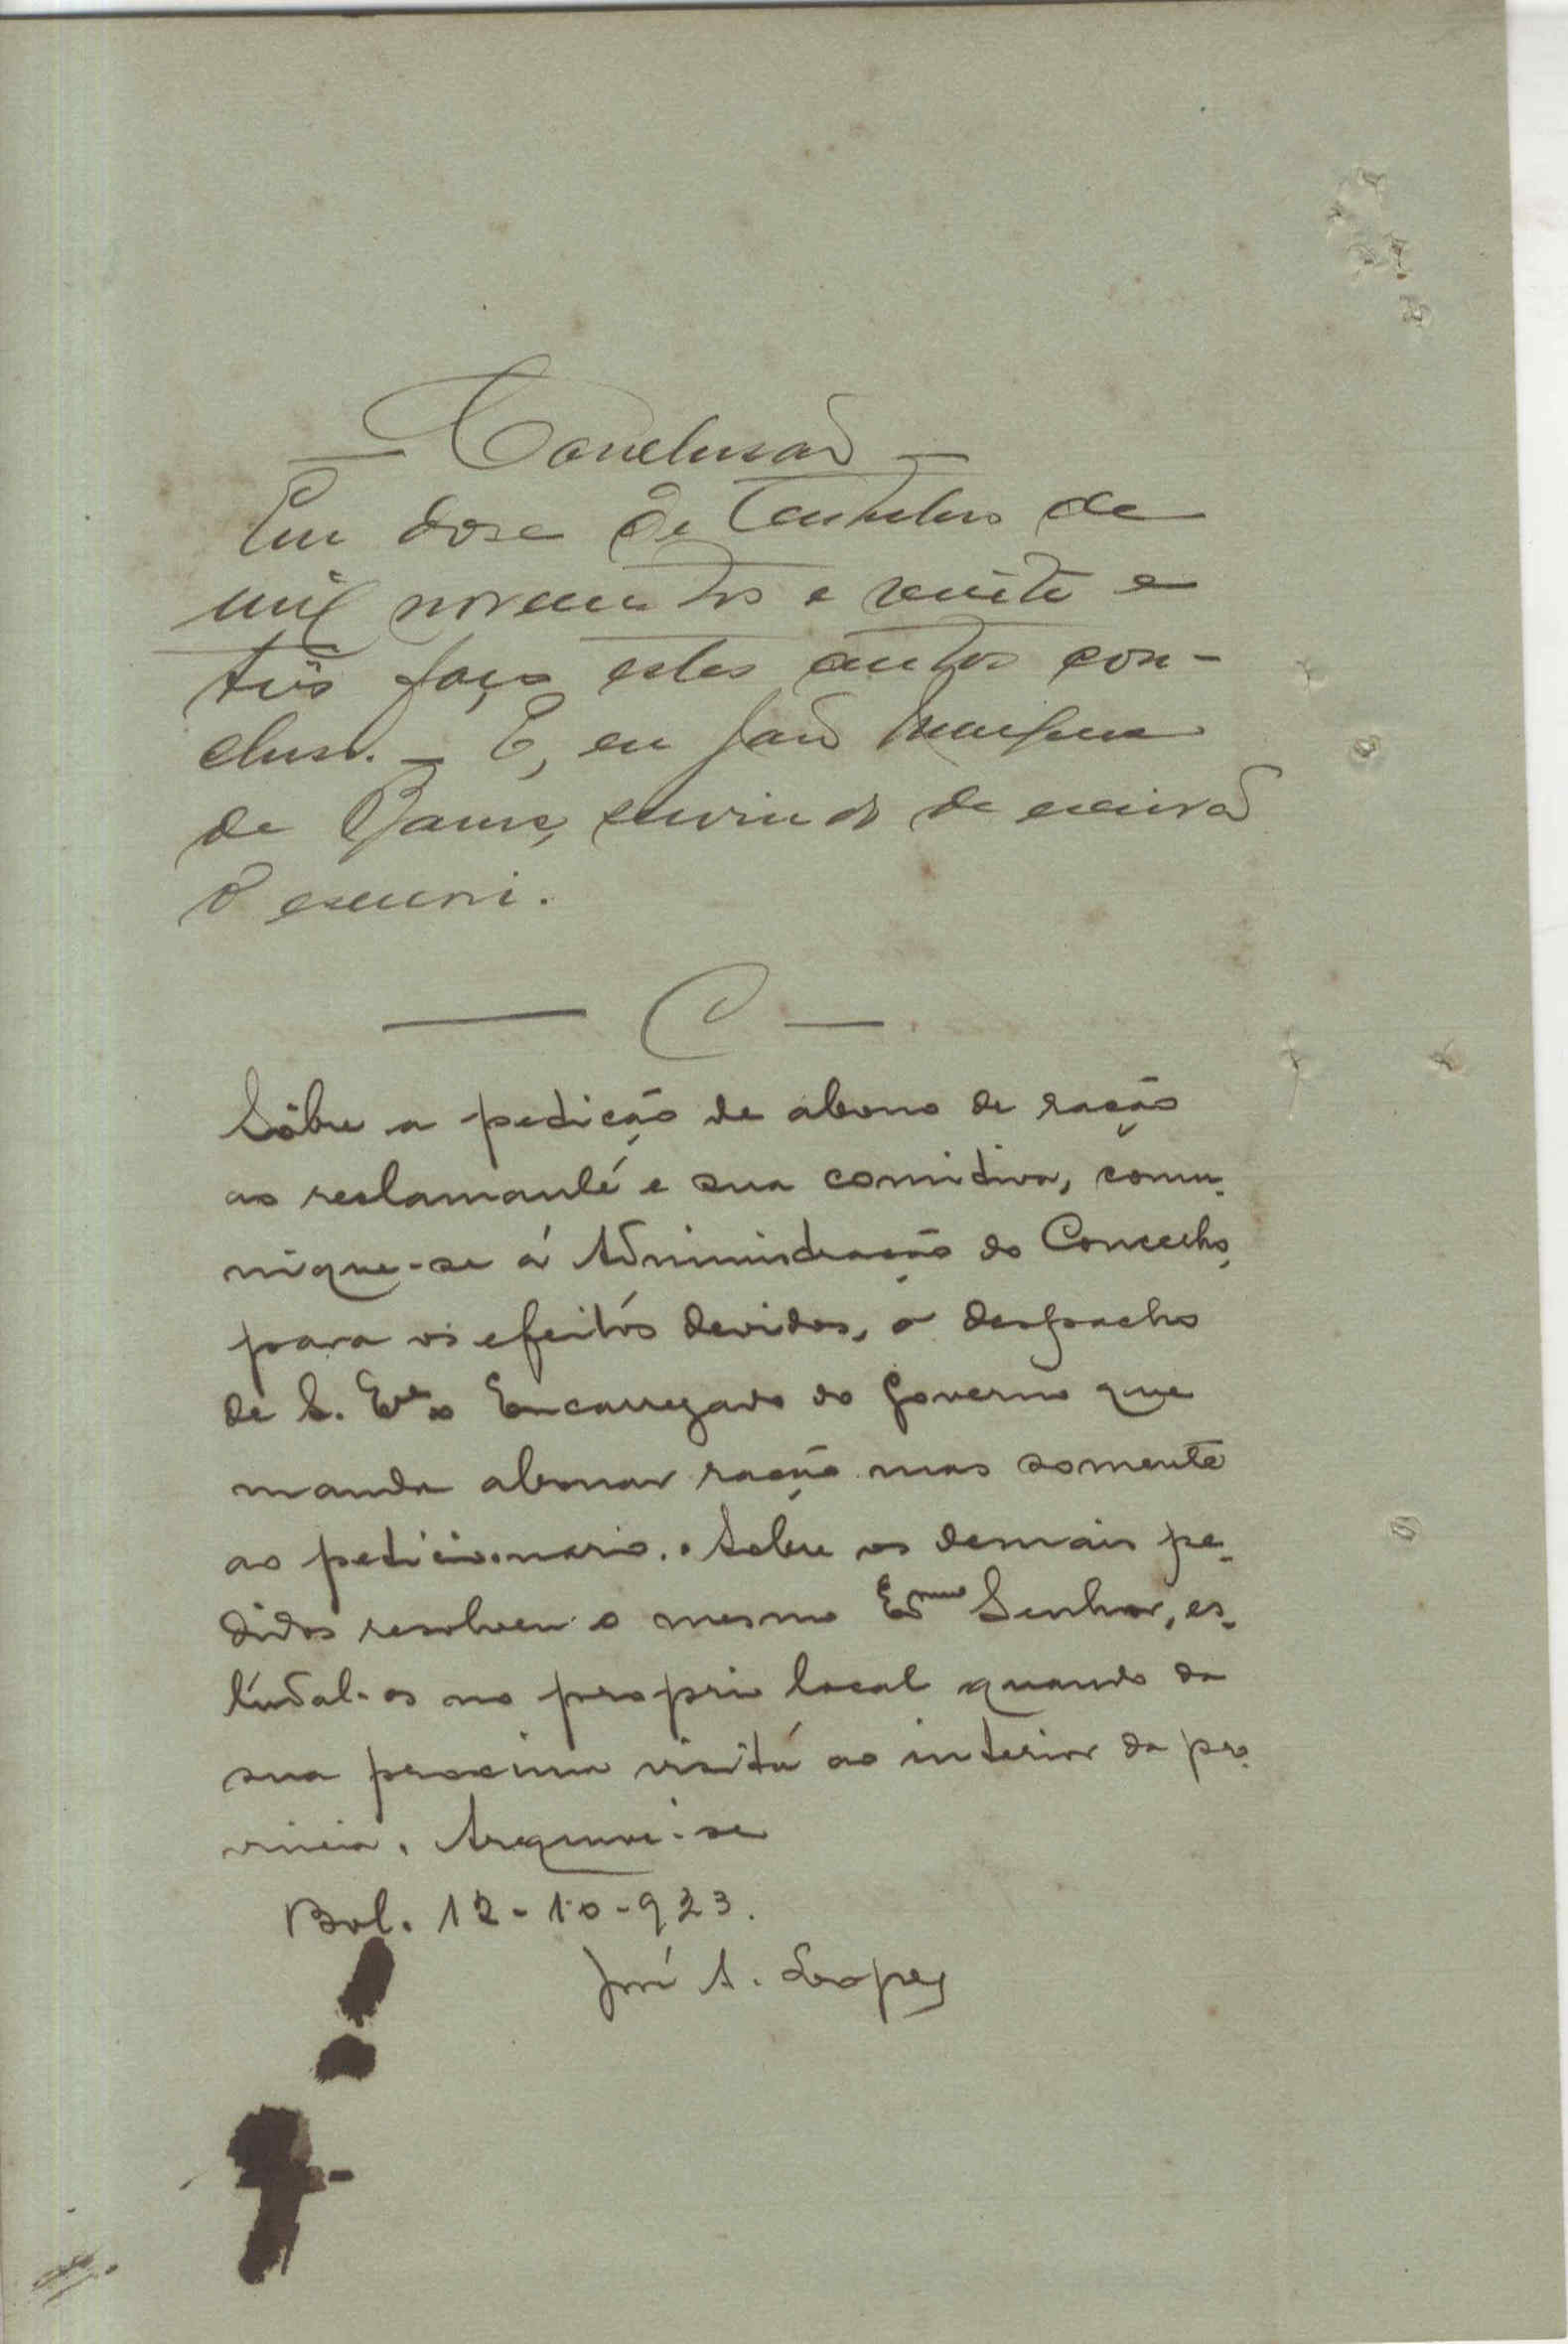 — Conclusão —
Em dose de Outubro de
mil novecentos e vinte e
três faço estes autos con-
clusos. — E, eu João
de Barros, servindo de escrivão
o escrevi.
— C —
Sôbre a petição de abono de ração
ao reclamante e sua comitiva, comu-
nique-se á Administração do Concelho,
para os efeitos devidos, o despacho
de S. Exª o Encarregado do Governo que
manda abonar ração mas somente
ao peticionario. Sobre os demais pe-
didos resolveu o mesmo Exmo Senhor, es-
tudal-os no proprio local quando da
sua proxima visita ao interior da pro-
vincia. Arquive-se
Bol. 12-10-923.
José A. Lopes